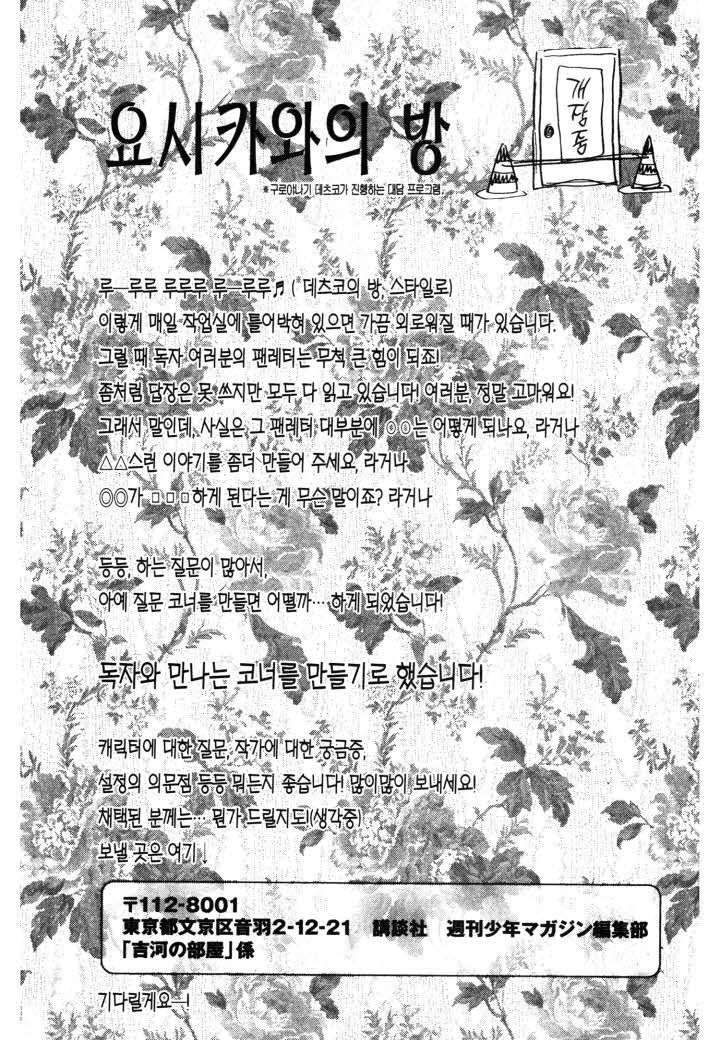 요시카와의 방
개장중
* 구로야나기 데츠코가 진행하는 대담 프로그램.
루―루루 루루루 루―루루♬ (*데츠코의 방, 스타일로)
이렇게 매일 작업실에 틀어박혀 있으면 가끔 외로워질 때가 있습니다.
그럴 때 독자 여러분의 팬레터는 무척 큰 힘이 되죠!
좀처럼 답장은 못 쓰지만 모두 다 읽고 있습니다! 여러분, 정말 고마워요!
그래서 말인데, 사실은 그 팬레터 대부분에 ○○는 어떻게 되나요, 라거나
△△스런 이야기를 좀더 만들어 주세요, 라거나
◎◎가 □□□하게 된다는 게 무슨 말이죠? 라거나
등등, 하는 질문이 많아서,
아예 질문 코너를 만들면 어떨까…하게 되었습니다!
독자와 만나는 코너를 만들기로 했습니다!
캐릭터에 대한 질문, 작가에 대한 궁금증,
설정의 의문점 등등 뭐든지 좋습니다! 많이많이 보내세요!
채택된 분께는… 뭔가 드릴지도!(생각중)
보낼 곳은 여기↓
〒112-8001
東京都文京区音羽2-12-21 講談社 週刊少年マガジン編集部
「吉河の部屋」係
기다릴게요―!